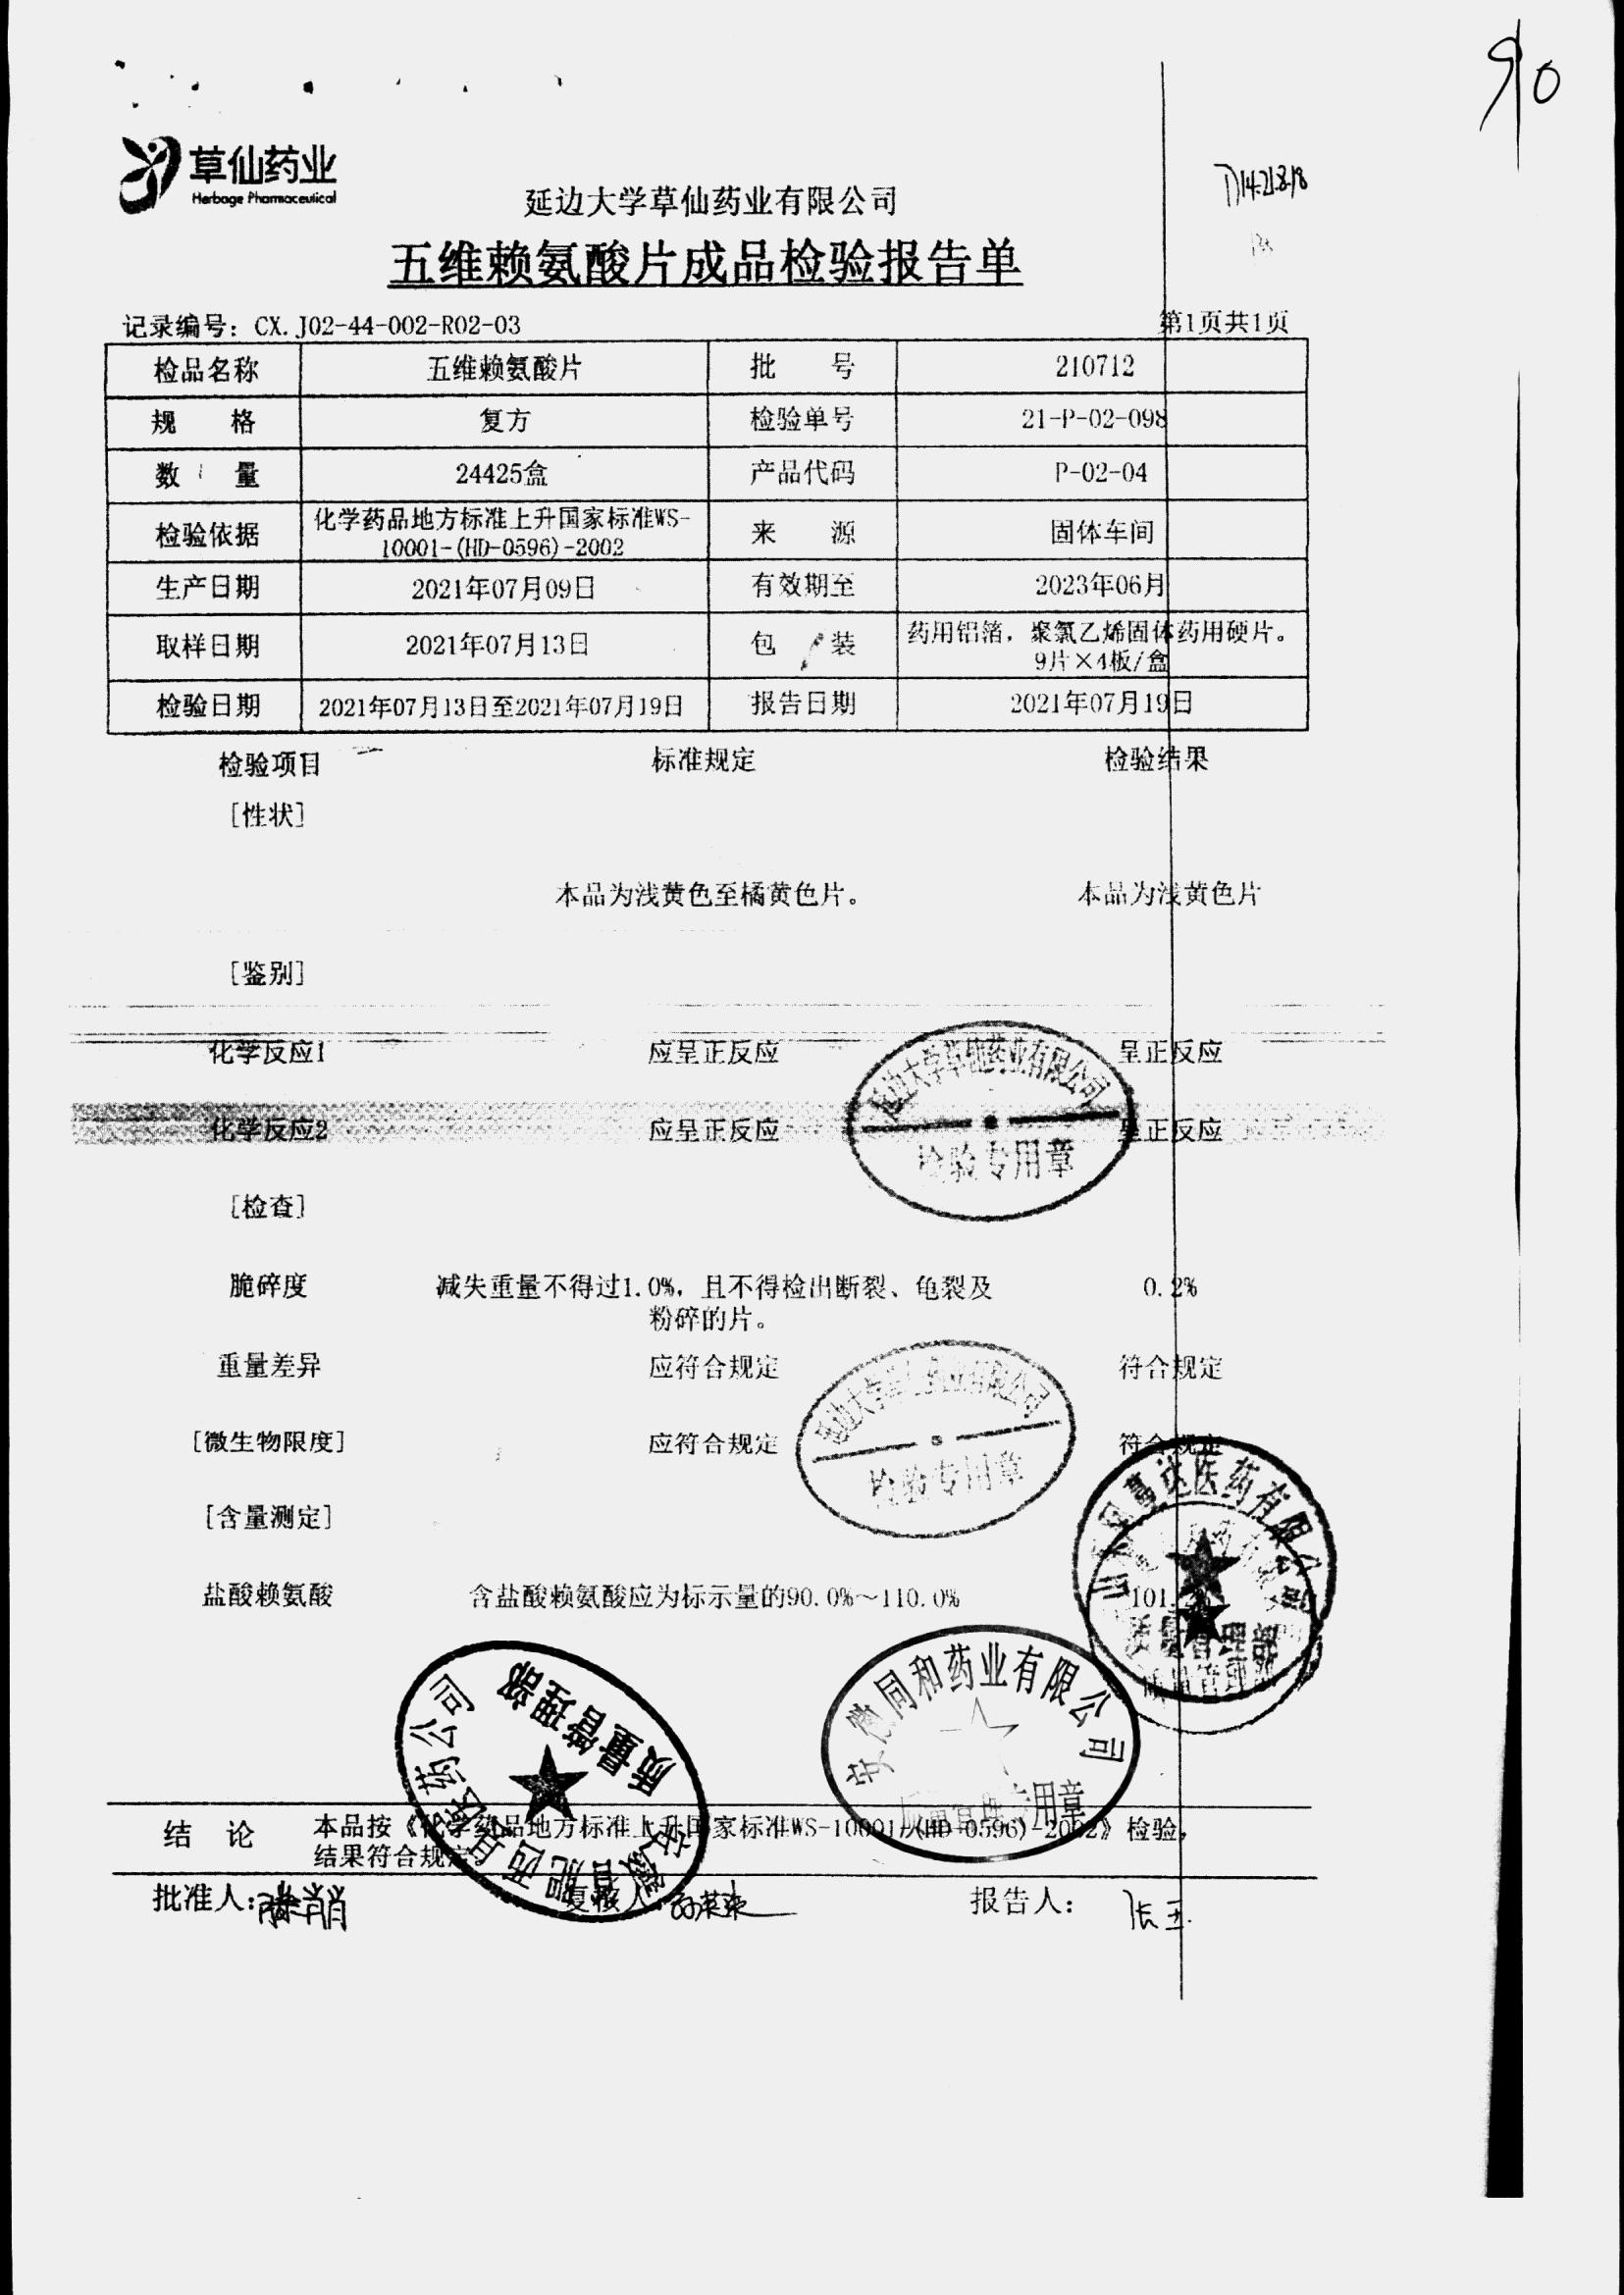 90
草仙药业
Herbage Pharmaceutical
延边大学草仙药业有限公司
五维赖氨酸片成品检验报告单
记录编号：CX.J02-44-002-R02-03 第1页共1页
检品名称 五维赖氨酸片 批 号 210712
规 格 复方 检验单号 21-P-02-098
数 量 24425盒 产品代码 P-02-04
检验依据 化学药品地方标准上升国家标准WS-
10001-(HD-0596)-2002 来 源 固体车间
生产日期 2021年07月09日 有效期至 2023年06月
取样日期 2021年07月13日 包 装 药用铝箔，聚氯乙烯固体药用硬片。
9片×4板/盒
检验日期 2021年07月13日至2021年07月19日 报告日期 2021年07月19日
检验项目 标准规定 检验结果
[性状]
本品为浅黄色至橘黄色片。 本品为浅黄色片
[鉴别]
化学反应1 应呈正反应 呈正反应
化学反应2 应呈正反应 呈正反应
延边大学草仙药业有限公司
检验专用章
[检查]
脆碎度 减失重量不得过1.0%，且不得检出断裂、龟裂及 0.2%
粉碎的片。
重量差异 应符合规定 符合规定
延边大学草仙药业有限公司
检验专用章
[微生物限度] 应符合规定 符合规定
[含量测定]
盐酸赖氨酸 含盐酸赖氨酸应为标示量的90.0%～110.0% 101.
质量管理部
安徽同和药业有限公司
质量管理专用章
安徽省肥西县医药公司
质量管理部
结 论 本品按《化学药品地方标准上升国家标准WS-10001-(HD-0596)-2002》检验，
结果符合规定。
批准人： 复核人： 报告人：